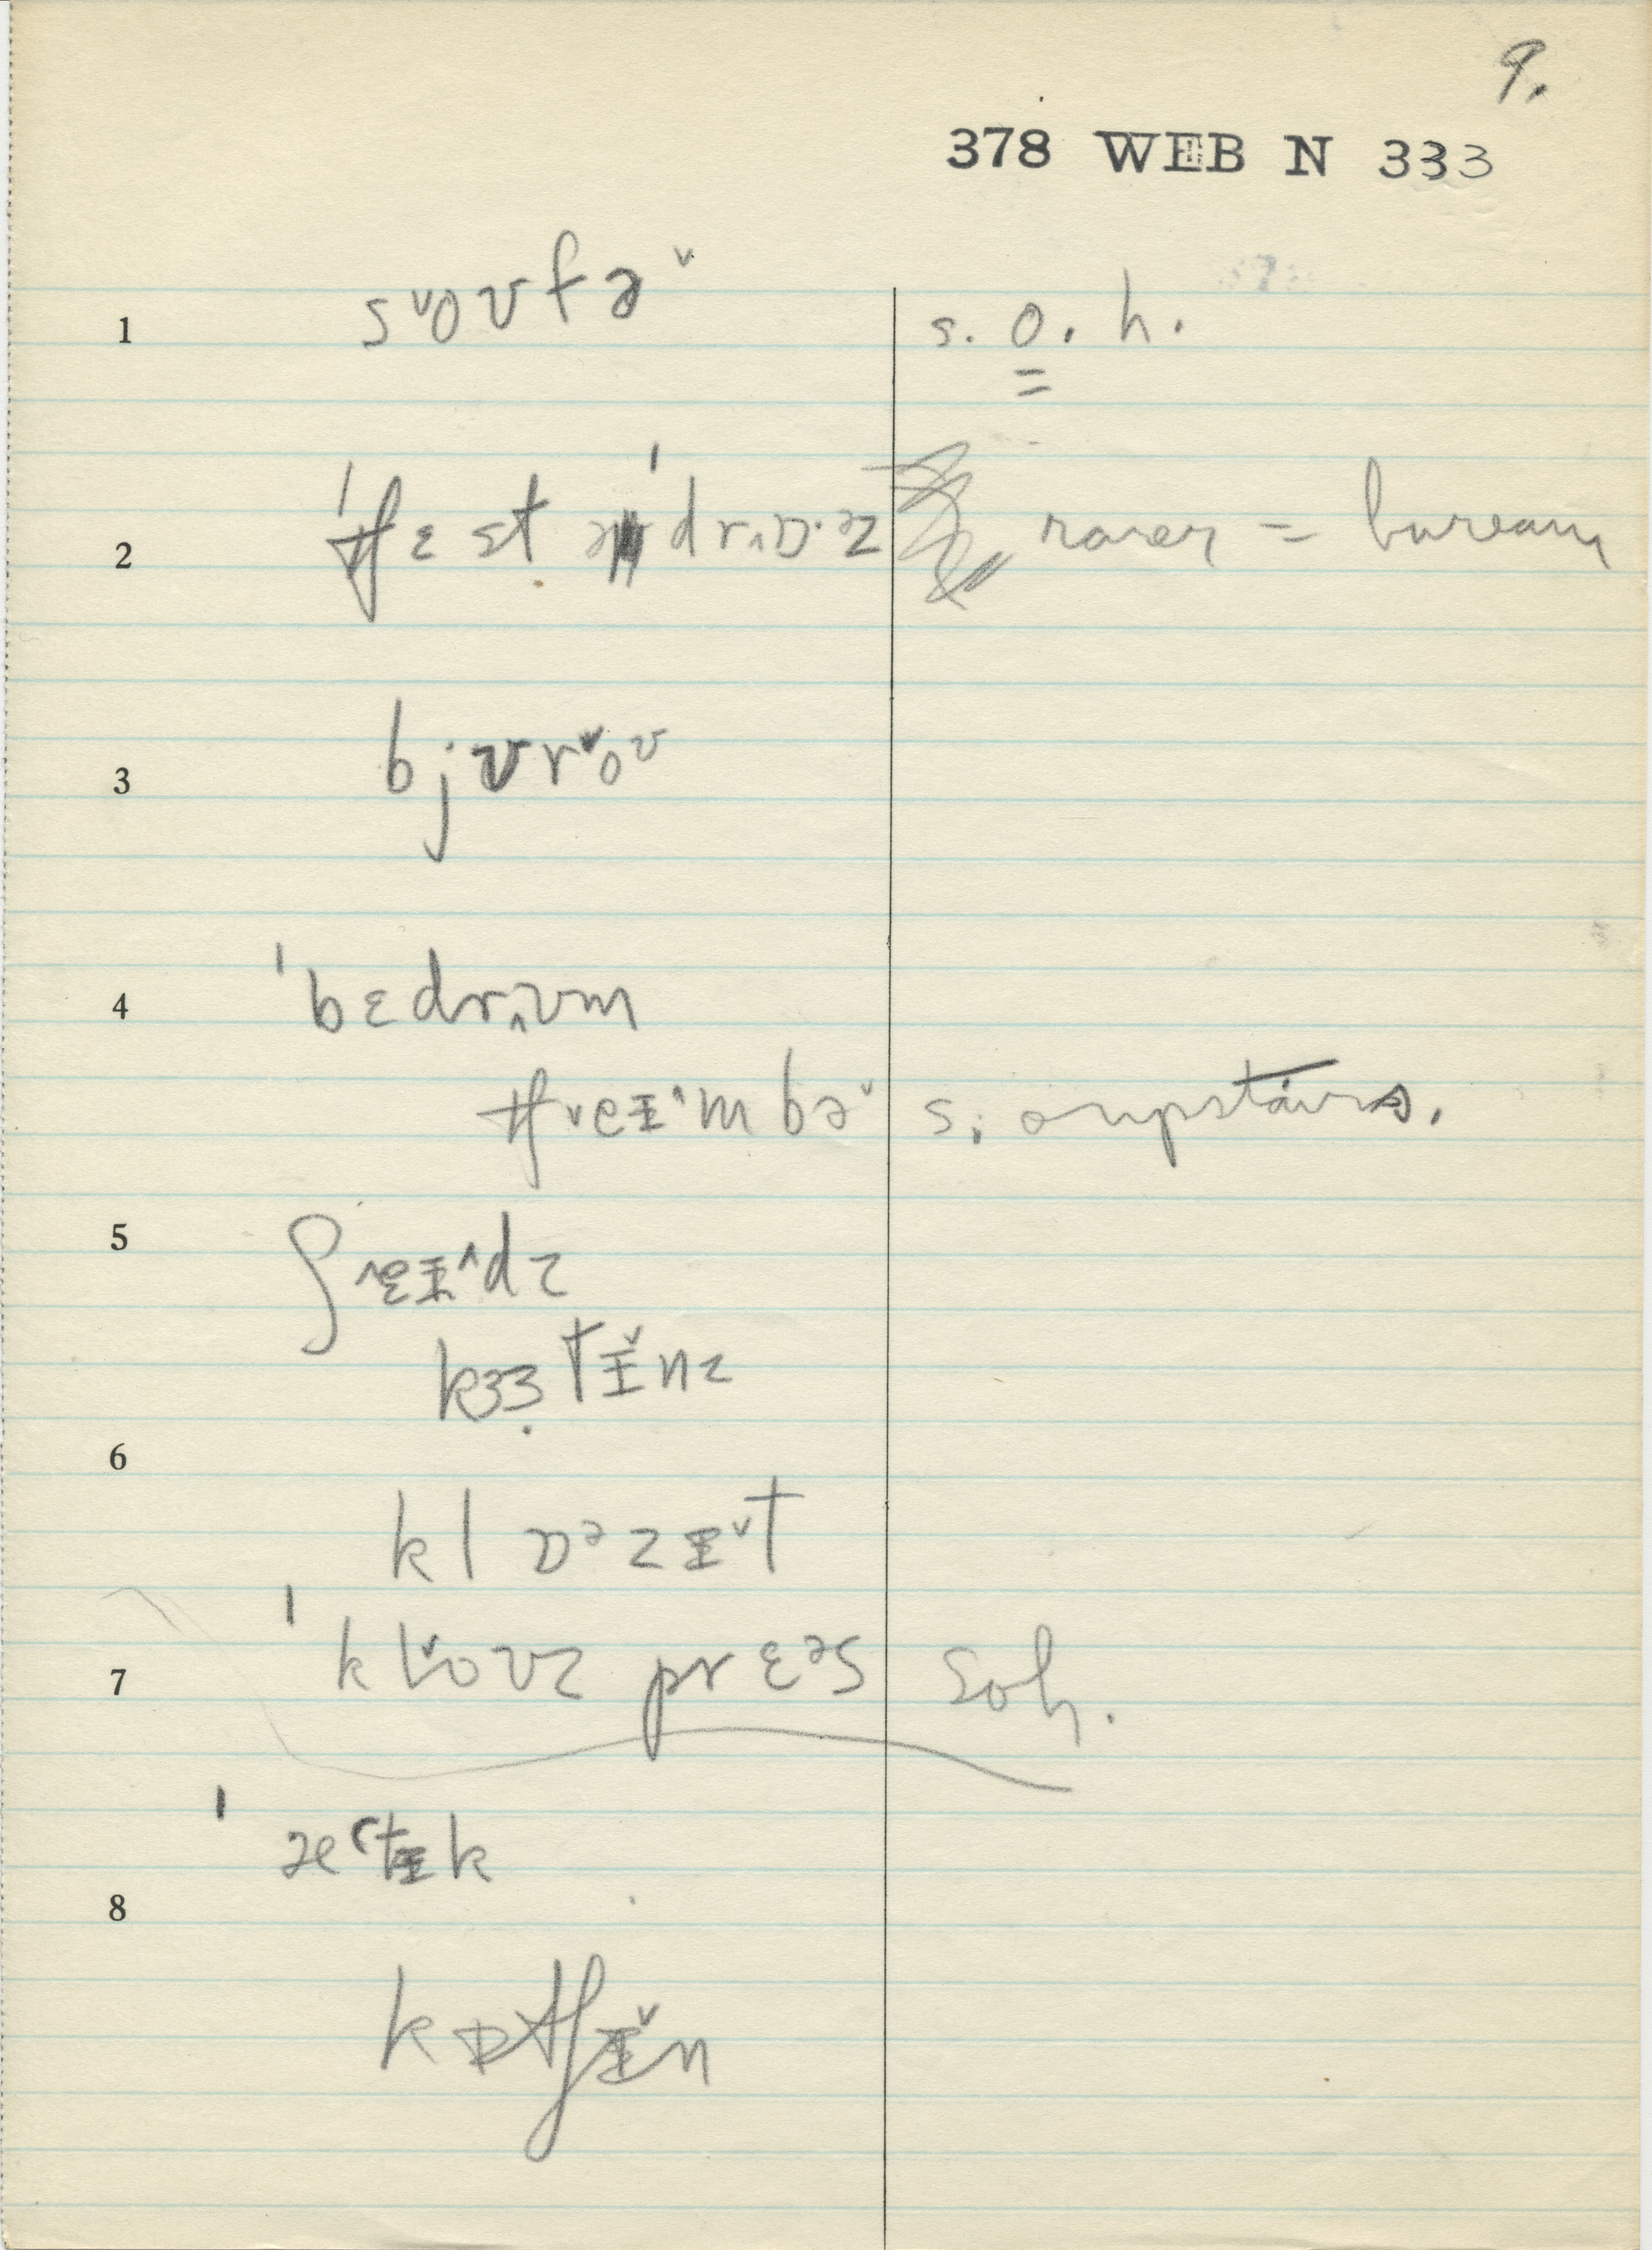 9.
378 WEB N 333
1 s˅oʊfə˅ s. o. h.
2 ˈtʃɛst ə ˈdr˄ɒ·ᵊz rarer = bureau
3 bjʊr˅oᶷ
4 ˈbɛdr˄ʊm
tʃ˅eɪ˄mbə˅ s; onupstairs.
5 ʃ˄eɪ˄dz
kɜɜ̣tɪ̌nz
6
klɒᵊzɪ˅t
7 ˈkl˅oʊz prɛᵊs soh.
ˈætɪk
8
kɒtʃɪ̌n